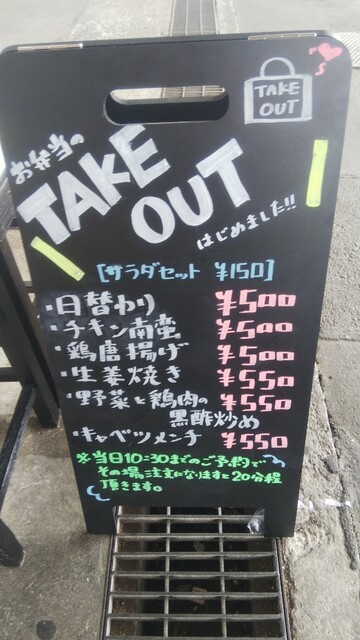 TAKE
OUT
お弁当の
TAKE
OUT
はじめました!!
[サラダセット ¥150]
・日替わり ¥500
・チキン南蛮 ¥500
・鶏唐揚げ ¥500
・生姜焼き ¥550
・野菜と鶏肉の
黒酢炒め ¥550
・キャベツメンチ ¥550
※当日10:30までのご予約で
その場注文になりますと20分程
頂きます。